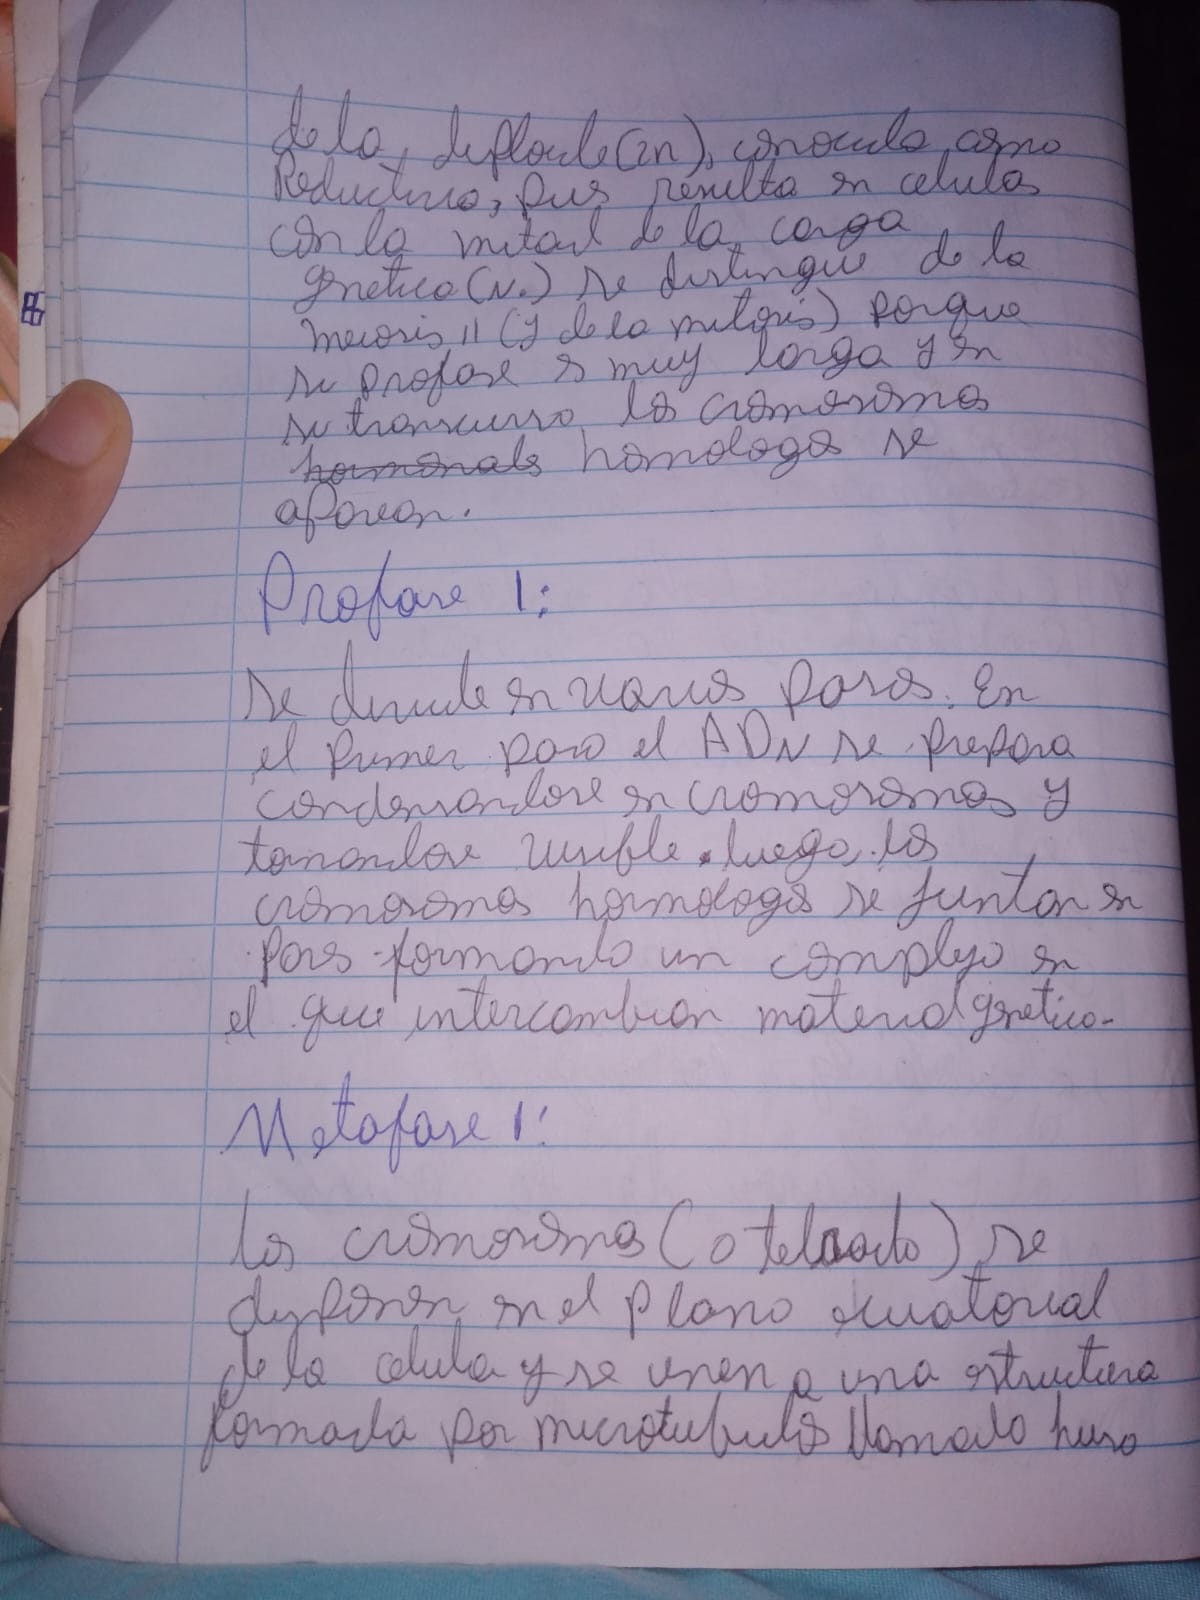 de la, deploide (2n), conocida como
Reductiva, pues resulta en celulas
con la mitad de la carga
genetica (N.) se distingue de la
meiosis II (y de la mitosis) porque
su profase es muy larga y en
su transcurso los cromosomas
hormonals homologos se
aparean.
Profase 1:
se divide en varios pasos. En
el primer paso el ADN se prepara
condensandose en cromosomas y
tornandose visible. luego, los
cromosomas homologos se juntan en
pares formando un complejo en
el que intercambian material genetico.
Metafase 1:
los cromosomas (o tetrada) se
disponen en el plano ecuatorial
de la celula y se unen a una estructura
formada por microtubulos llamado huso